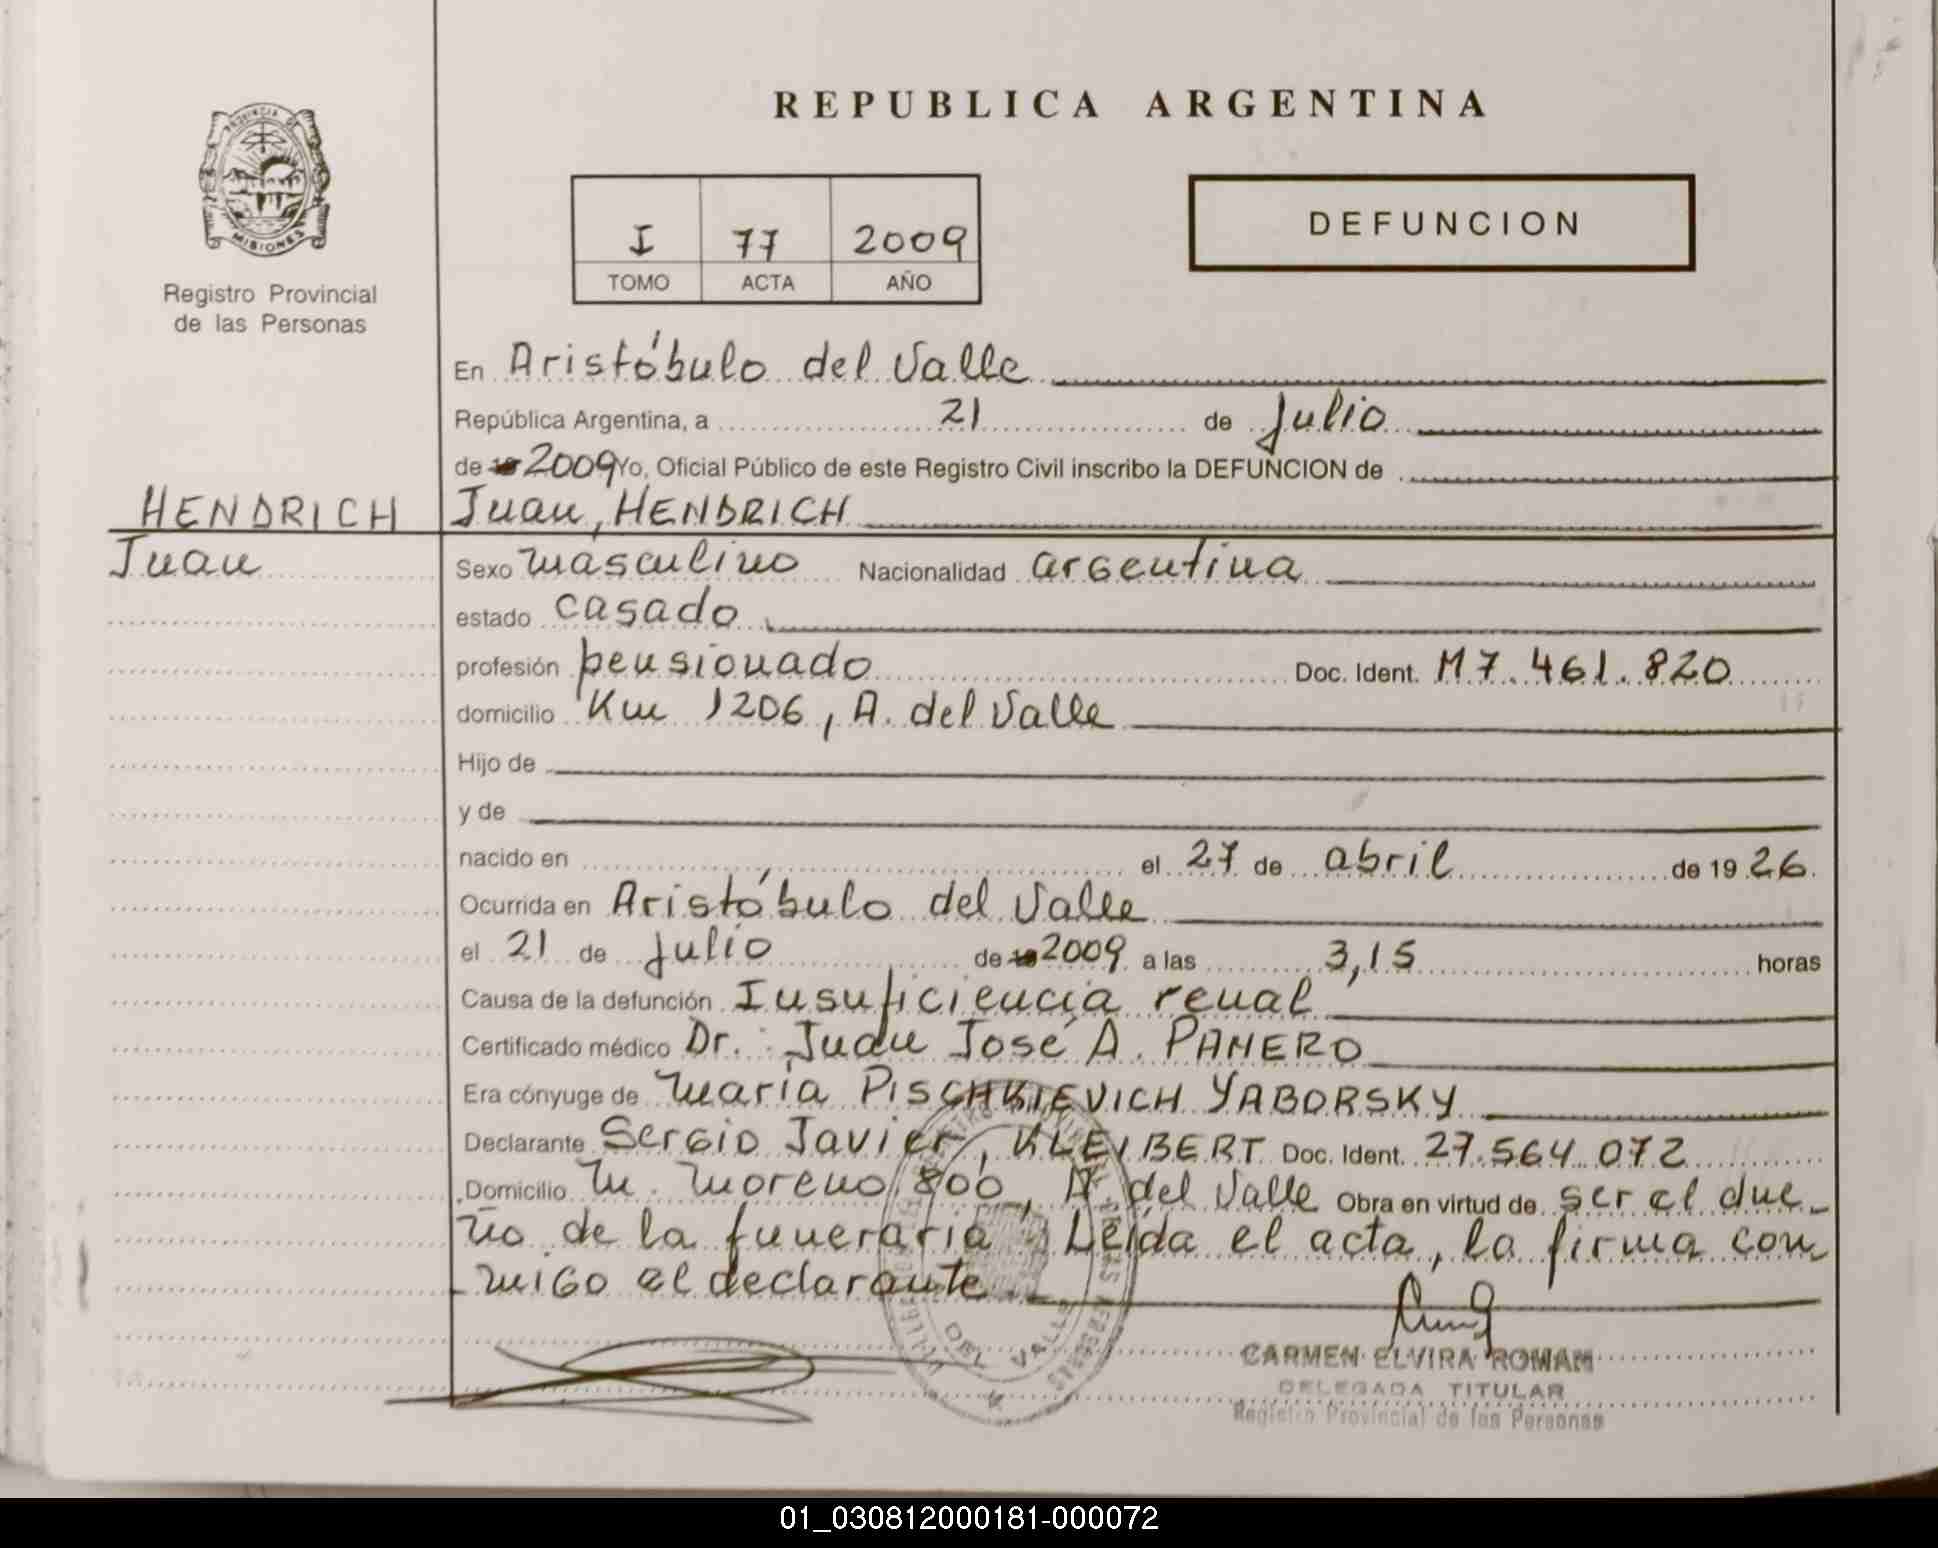 REPUBLICA ARGENTINA
PROVINCIA DE
MISIONES
Registro Provincial
de las Personas
I 77 2009
TOMO ACTA AÑO
DEFUNCION
En Aristóbulo del Valle
República Argentina, a 21 de Julio
de 2009 Yo, Oficial Público de este Registro Civil inscribo la DEFUNCION de
HENDRICH
Juan, HENDRICH
Juan
Sexo masculino Nacionalidad argentina
estado casado
profesión pensionado Doc. Ident. M7.461.820
domicilio Km 1206, A. del Valle
Hijo de
y de
nacido en el 27 de abril de 1926.
Ocurrida en Aristóbulo del Valle
el 21 de julio de 2009 a las 3,15 horas
Causa de la defunción Insuficiencia renal
Certificado médico Dr. Juan José A. PANERO
Era cónyuge de María PISCHKIEVICH YABORSKY
Declarante Sergio Javier, KLEIBERT Doc. Ident. 27.564.072
Domicilio M. Moreno 800, A. del Valle Obra en virtud de ser el due-
ño de la funeraria Leída el acta, la firma con
migo el declarante
DEL VALLE
CARMEN ELVIRA ROMAN
DELEGADA TITULAR
Registro Provincial de las Personas
01_030812000181-000072